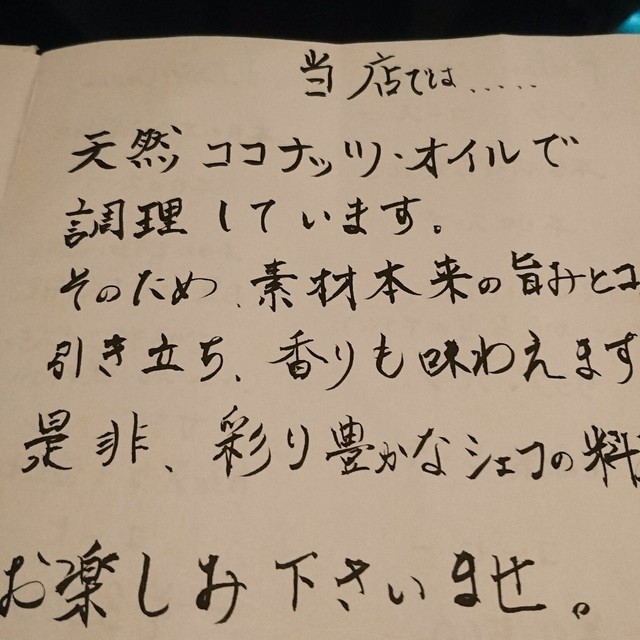 当店では.....
天然ココナッツ・オイルで
調理しています。
そのため、素材本来の旨みとコ
引き立ち、香りも味わえます
是非、彩り豊かなシェフの料
お楽しみ下さいませ。